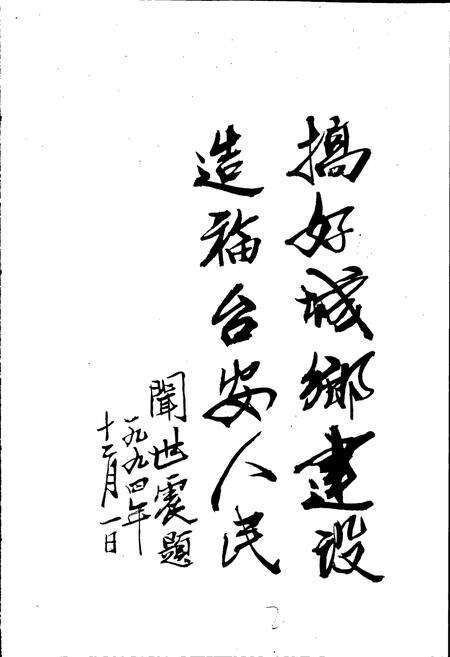 搞好城鄉建设
造福台安人民
闻世震題
一九九四年
十二月一日
2